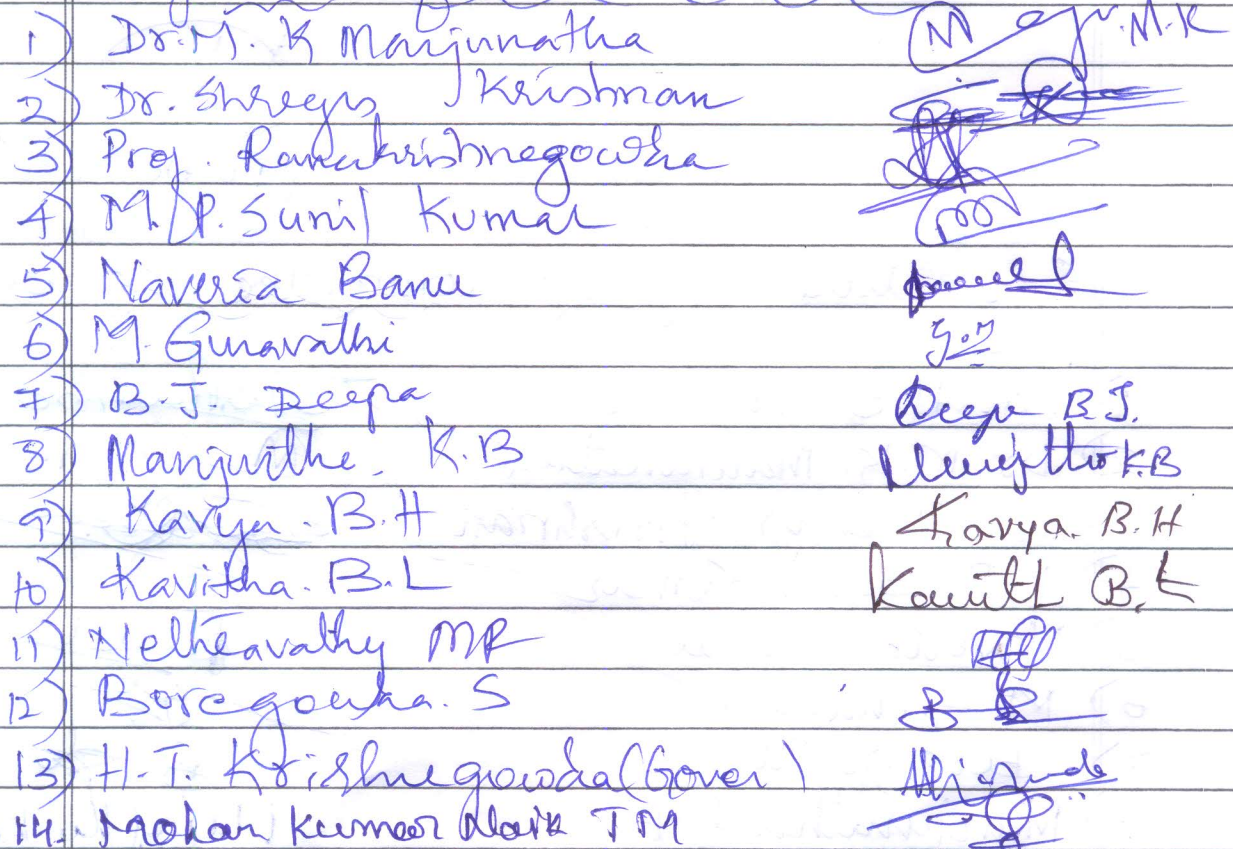 1) Dr. M. K Manjunatha M.K
2) Dr. Shreyas Krishnan
3) Prof. Ramakrishnegowda
4) M.P. Sunil Kumar
5) Naveria Banu
6) M. Gunavathi
7) B.J. Deepa Deepa B.J.
8) Manjuithe. K.B K.B
9) Kavya. B.H Kavya. B.H
10) Kavitha. B.L Kavith B.L
11) Netheavathy MR
12) Boregowda. S
13) H.T. Krishnegowda (Gover)
14. Mohan Kumar Naik TM